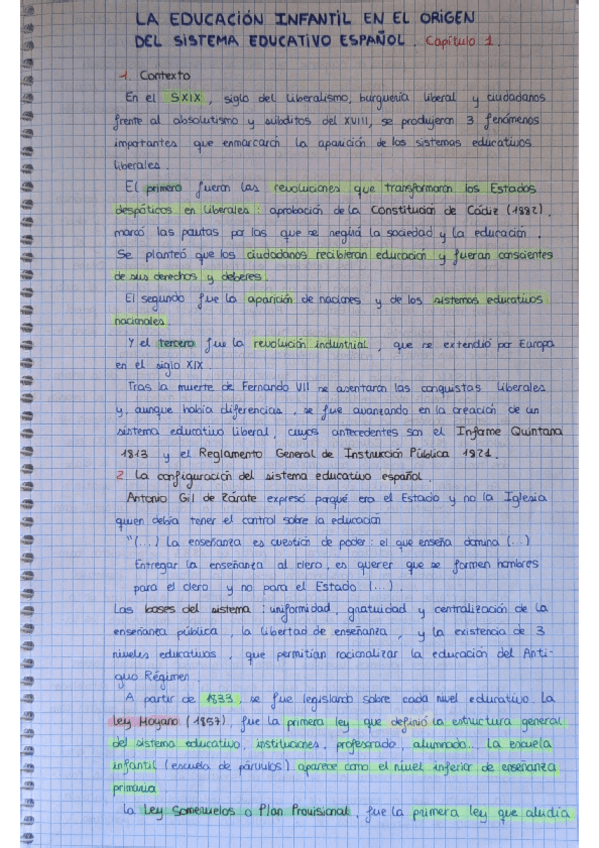 LA EDUCACIÓN INFANTIL EN EL ORIGEN
DEL SISTEMA EDUCATIVO ESPAÑOL. Capítulo 1.
1. Contexto
En el SXIX, siglo del liberalismo, burguesía liberal y ciudadanos
frente al absolutismo y súbditos del XVIII, se produjeron 3 fenómenos
importantes que enmarcarán la aparición de los sistemas educativos
liberales.
El primero fueron las revoluciones que transformaron los Estados
despóticos en liberales: aprobación de la Constitución de Cádiz (1882),
marcó las pautas por las que se regirá la sociedad y la educación.
Se planteó que los ciudadanos recibieran educación y fueran conscientes
de sus derechos y deberes.
El segundo fue la aparición de naciones y de los sistemas educativos
nacionales.
Y el tercero fue la revolución industrial, que se extendió por Europa
en el siglo XIX.
Tras la muerte de Fernando VII se asentaron las conquistas liberales
y, aunque había diferencias, se fue avanzando en la creación de un
sistema educativo liberal, cuyos antecedentes son el Informe Quintana
1813 y el Reglamento General de Instrucción Pública 1821.
2 La configuración del sistema educativo español.
Antonio Gil de Zárate expresó porqué era el Estado y no la Iglesia
quien debía tener el control sobre la educación
"(...) La enseñanza es cuestión de poder: el que enseña domina (...)
Entregar la enseñanza al clero, es querer que se formen hombres
para el clero y no para el Estado (...).
Las bases del sistema: uniformidad, gratuidad y centralización de la
enseñanza pública, la libertad de enseñanza, y la existencia de 3
niveles educativos, que permitían racionalizar la educación del Anti-
guo Régimen.
A partir de 1833, se fue legislando sobre cada nivel educativo. La
Ley Moyano (1857), fue la primera ley que definió la estructura general
del sistema educativo, instituciones, profesorado, alumnado. La escuela
infantil (escuela de párvulos) aparece como el nivel inferior de enseñanza
primaria.
La Ley Someruelos o Plan Provisional, fue la primera ley que aludía